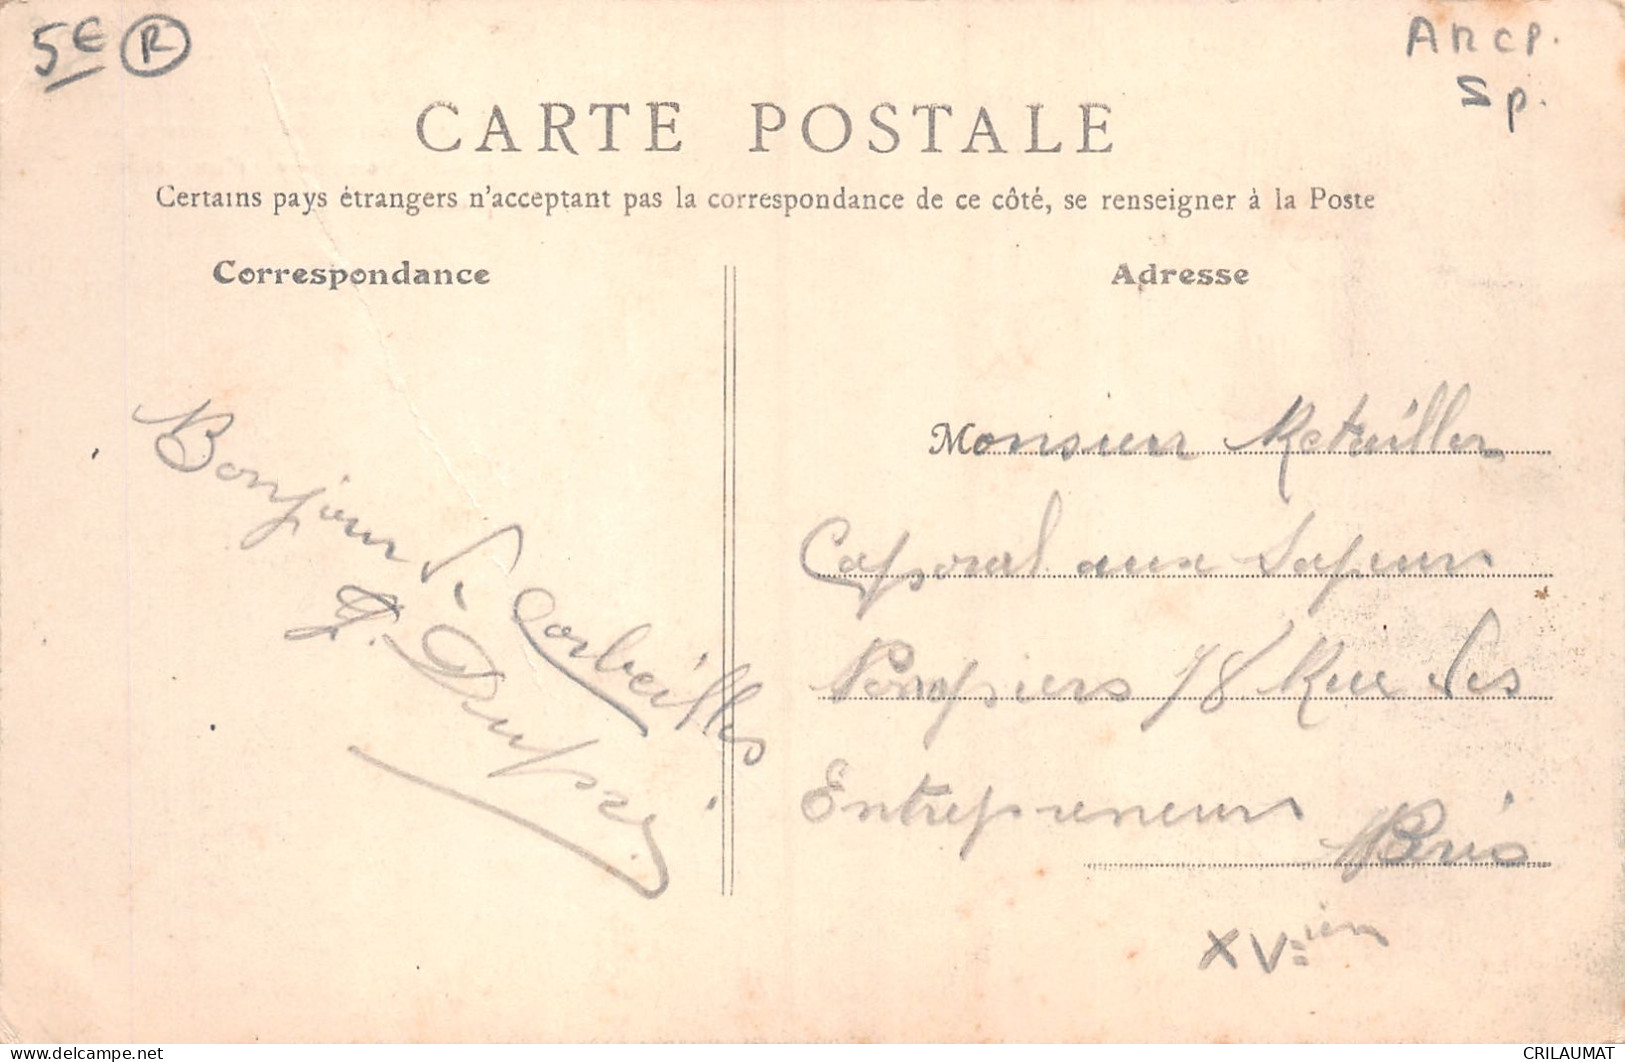 5€ R
Ancp.
Sp.
CARTE POSTALE
Certains pays étrangers n'acceptant pas la correspondance de ce côté, se renseigner à la Poste
Correspondance
Adresse
Bonjour de Corbeilles
Dupré
Monsieur Retailler
Caporal aux Sapeurs
Pompiers 78 Rue des
Entrepreneurs
Paris
XV=ièm
delcampe.net
CRILAUMAT